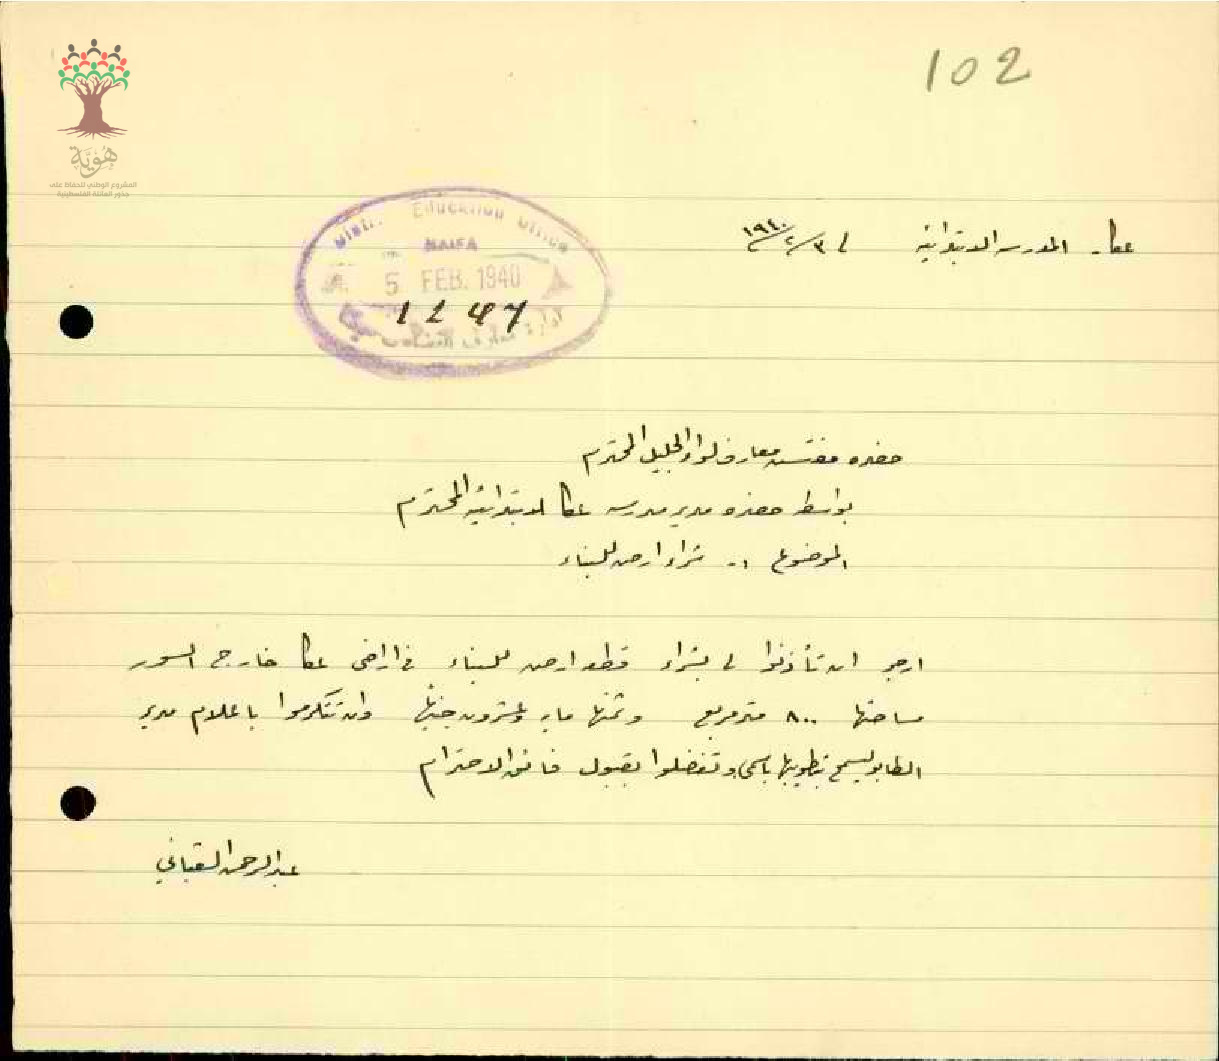 102
هُوِيَّة
المشروع الوطني للحفاظ على
جذور العائلة الفلسطينية
Distr. Education Office
HAIFA
5 FEB. 1940
1247
ادارة معارف
عكا - المدرسة الابتدائية ٣/٢/١٩٤٠
حضرة مفتش معارف لواء الجليل المحترم
بواسطة حضرة مدير مدرسة عكا الابتدائية المحترم
الموضوع :- شراء ارض للبناء
ارجو ان تأذنوا لي بشراء قطعة ارض للبناء في اراضي عكا خارج السور
مساحتها ٨٠٠ متر مربع وثمنها ماية وعشرون جنيهًا وان تتكرموا باعلام مدير
الطابو ليسمح بتطويبها باسمي وتفضلوا بقبول فائق الاحترام
عبد الرحمن